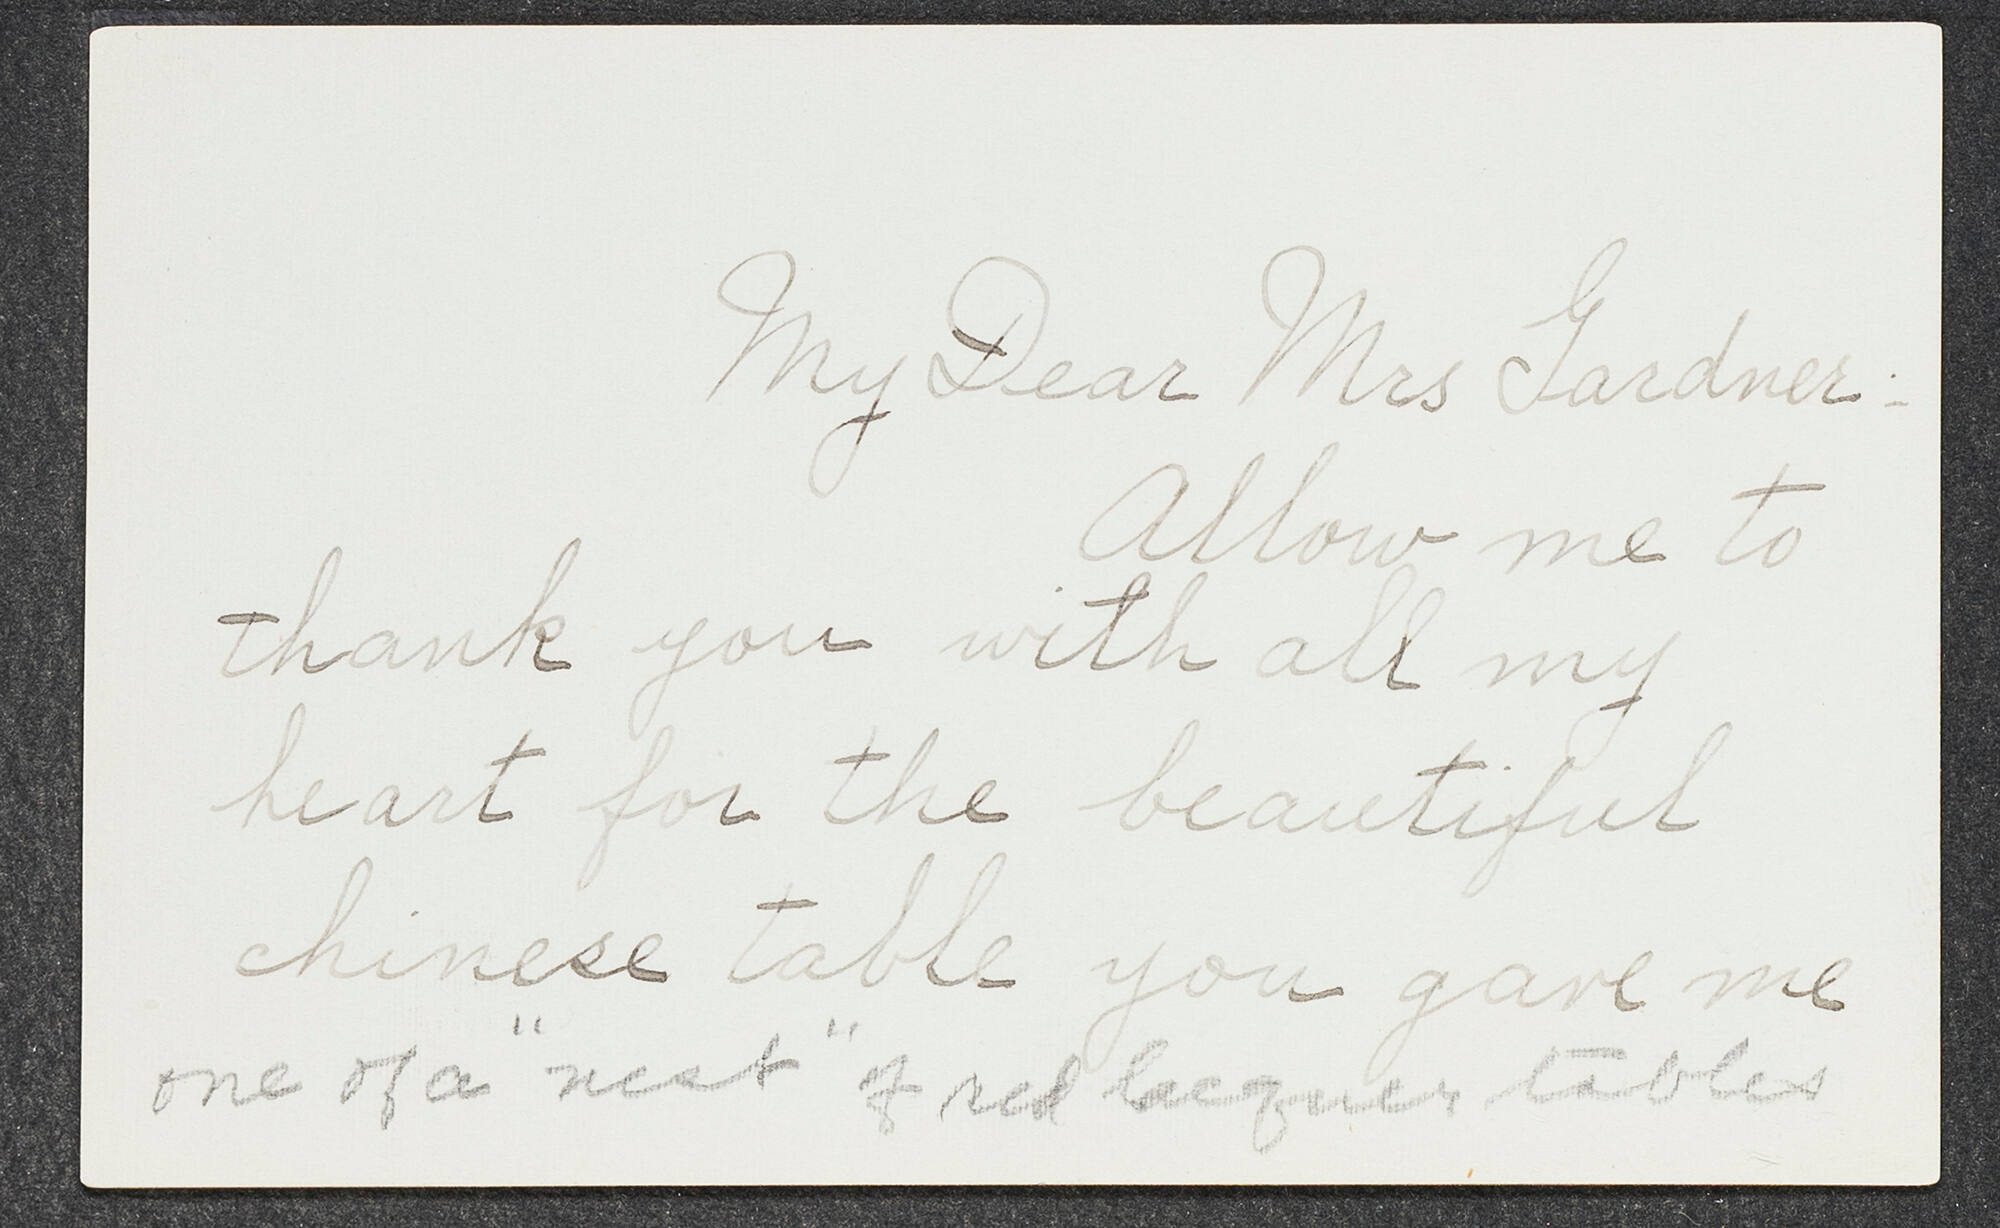 My Dear Mrs Gardner:-
Allow me to
thank you with all my
heart for the beautiful
chinese table you gave me
one of a "nest" of red lacquer tables